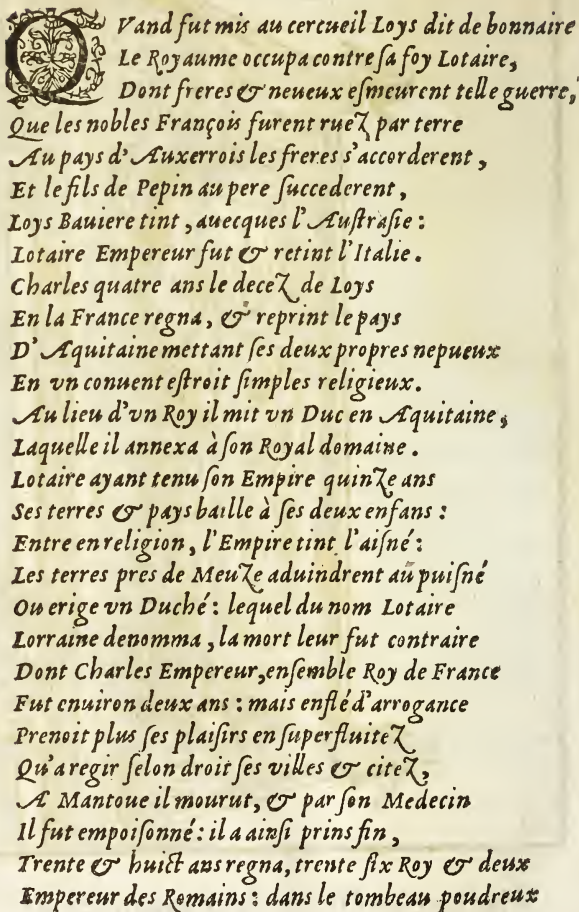 QVand fut mis au cercueil Loys dit de bonnaire
Le Royaume occupa contre ſa foy Lotaire,
Dont freres & neueux eſmeurent telle guerre,
Que les nobles François furent ruez par terre
Au pays d'Auxerrois les freres s'accorderent,
Et le fils de Pepin au pere ſuccederent,
Loys Bauiere tint, auecques l'Auſtraſie:
Lotaire Empereur fut & retint l'Italie.
Charles quatre ans le decez de Loys
En la France regna, & reprint le pays
D'Aquitaine mettant ſes deux propres nepueux
En vn conuent eſtroit ſimples religieux.
Au lieu d'vn Roy il mit vn Duc en Aquitaine,
Laquelle il annexa à ſon Royal domaine.
Lotaire ayant tenu ſon Empire quinze ans
Ses terres & pays baille à ſes deux enfans:
Entre en religion, l'Empire tint l'aiſné:
Les terres pres de Meuze aduindrent au puiſné
Ou erige vn Duché: lequel du nom Lotaire
Lorraine denomma, la mort leur fut contraire
Dont Charles Empereur, enſemble Roy de France
Fut enuiron deux ans: mais enflé d'arrogance
Prenoit plus ſes plaiſirs en ſuperfluitez
Qu'a regir ſelon droit ſes villes & citez,
A Mantoue il mourut, & par ſon Medecin
Il fut empoiſonné: il a ainſi prins fin,
Trente & huict ans regna, trente ſix Roy & deux
Empereur des Romains: dans le tombeau poudreux